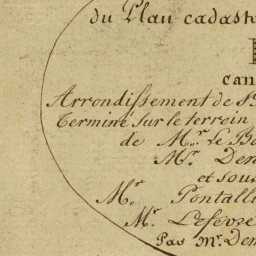 du Plan cadast
can
Arrondissement de
Terminé sur le terrein
de Mr. Le
Mr. Den
et sous
Mr. Pontalli
Mr. Lefevre
Par Mr. Dem